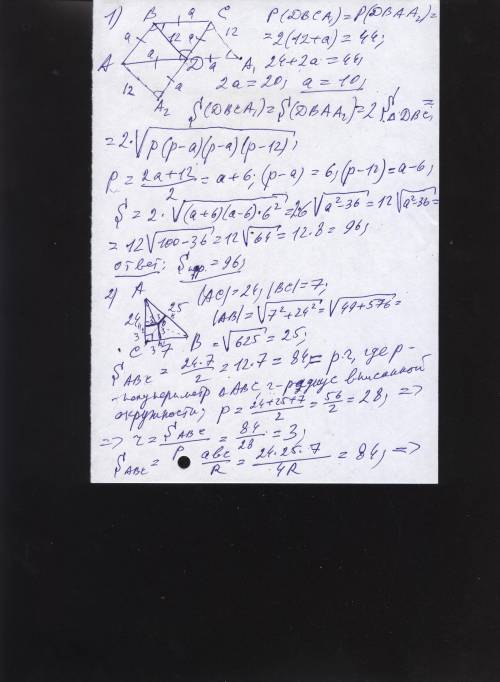 1)
B a C
P(DBCA₁)=P(DBAA₂)=
a 12 a 12
=2(12+a)=44;
A a D A₁
24+2a=44;
12 a
2a=20; a=10;
A₂
S(DBCA₁)=S(DBAA₂)=2·S△DBC=
=2·√p(p-a)(p-a)(p-12);
p=2a+12/2=a+6; (p-a)=6; (p-12)=a-6;
S=2·√(a+6)(a-6)·6²=2·6√a²-36=12√a²-36=
=12√100-36=12√64=12·8=96;
ответ: Sпар.=96;
2) A
|AC|=24; |BC|=7;
24 25
|AB|=√7²+24²=√49+576=
3 3
C 3 7 B
=√625=25;
S ABC=24·7/2=12·7=84=p·r, где p-
-полупериметр △ABC, r-радиус вписанной
окружности; p=24+25+7/2=56/2=28, =>
=> r=S ABC/p=84/28=3;
S ABC= abc/R=24·25·7/4R=84; =>